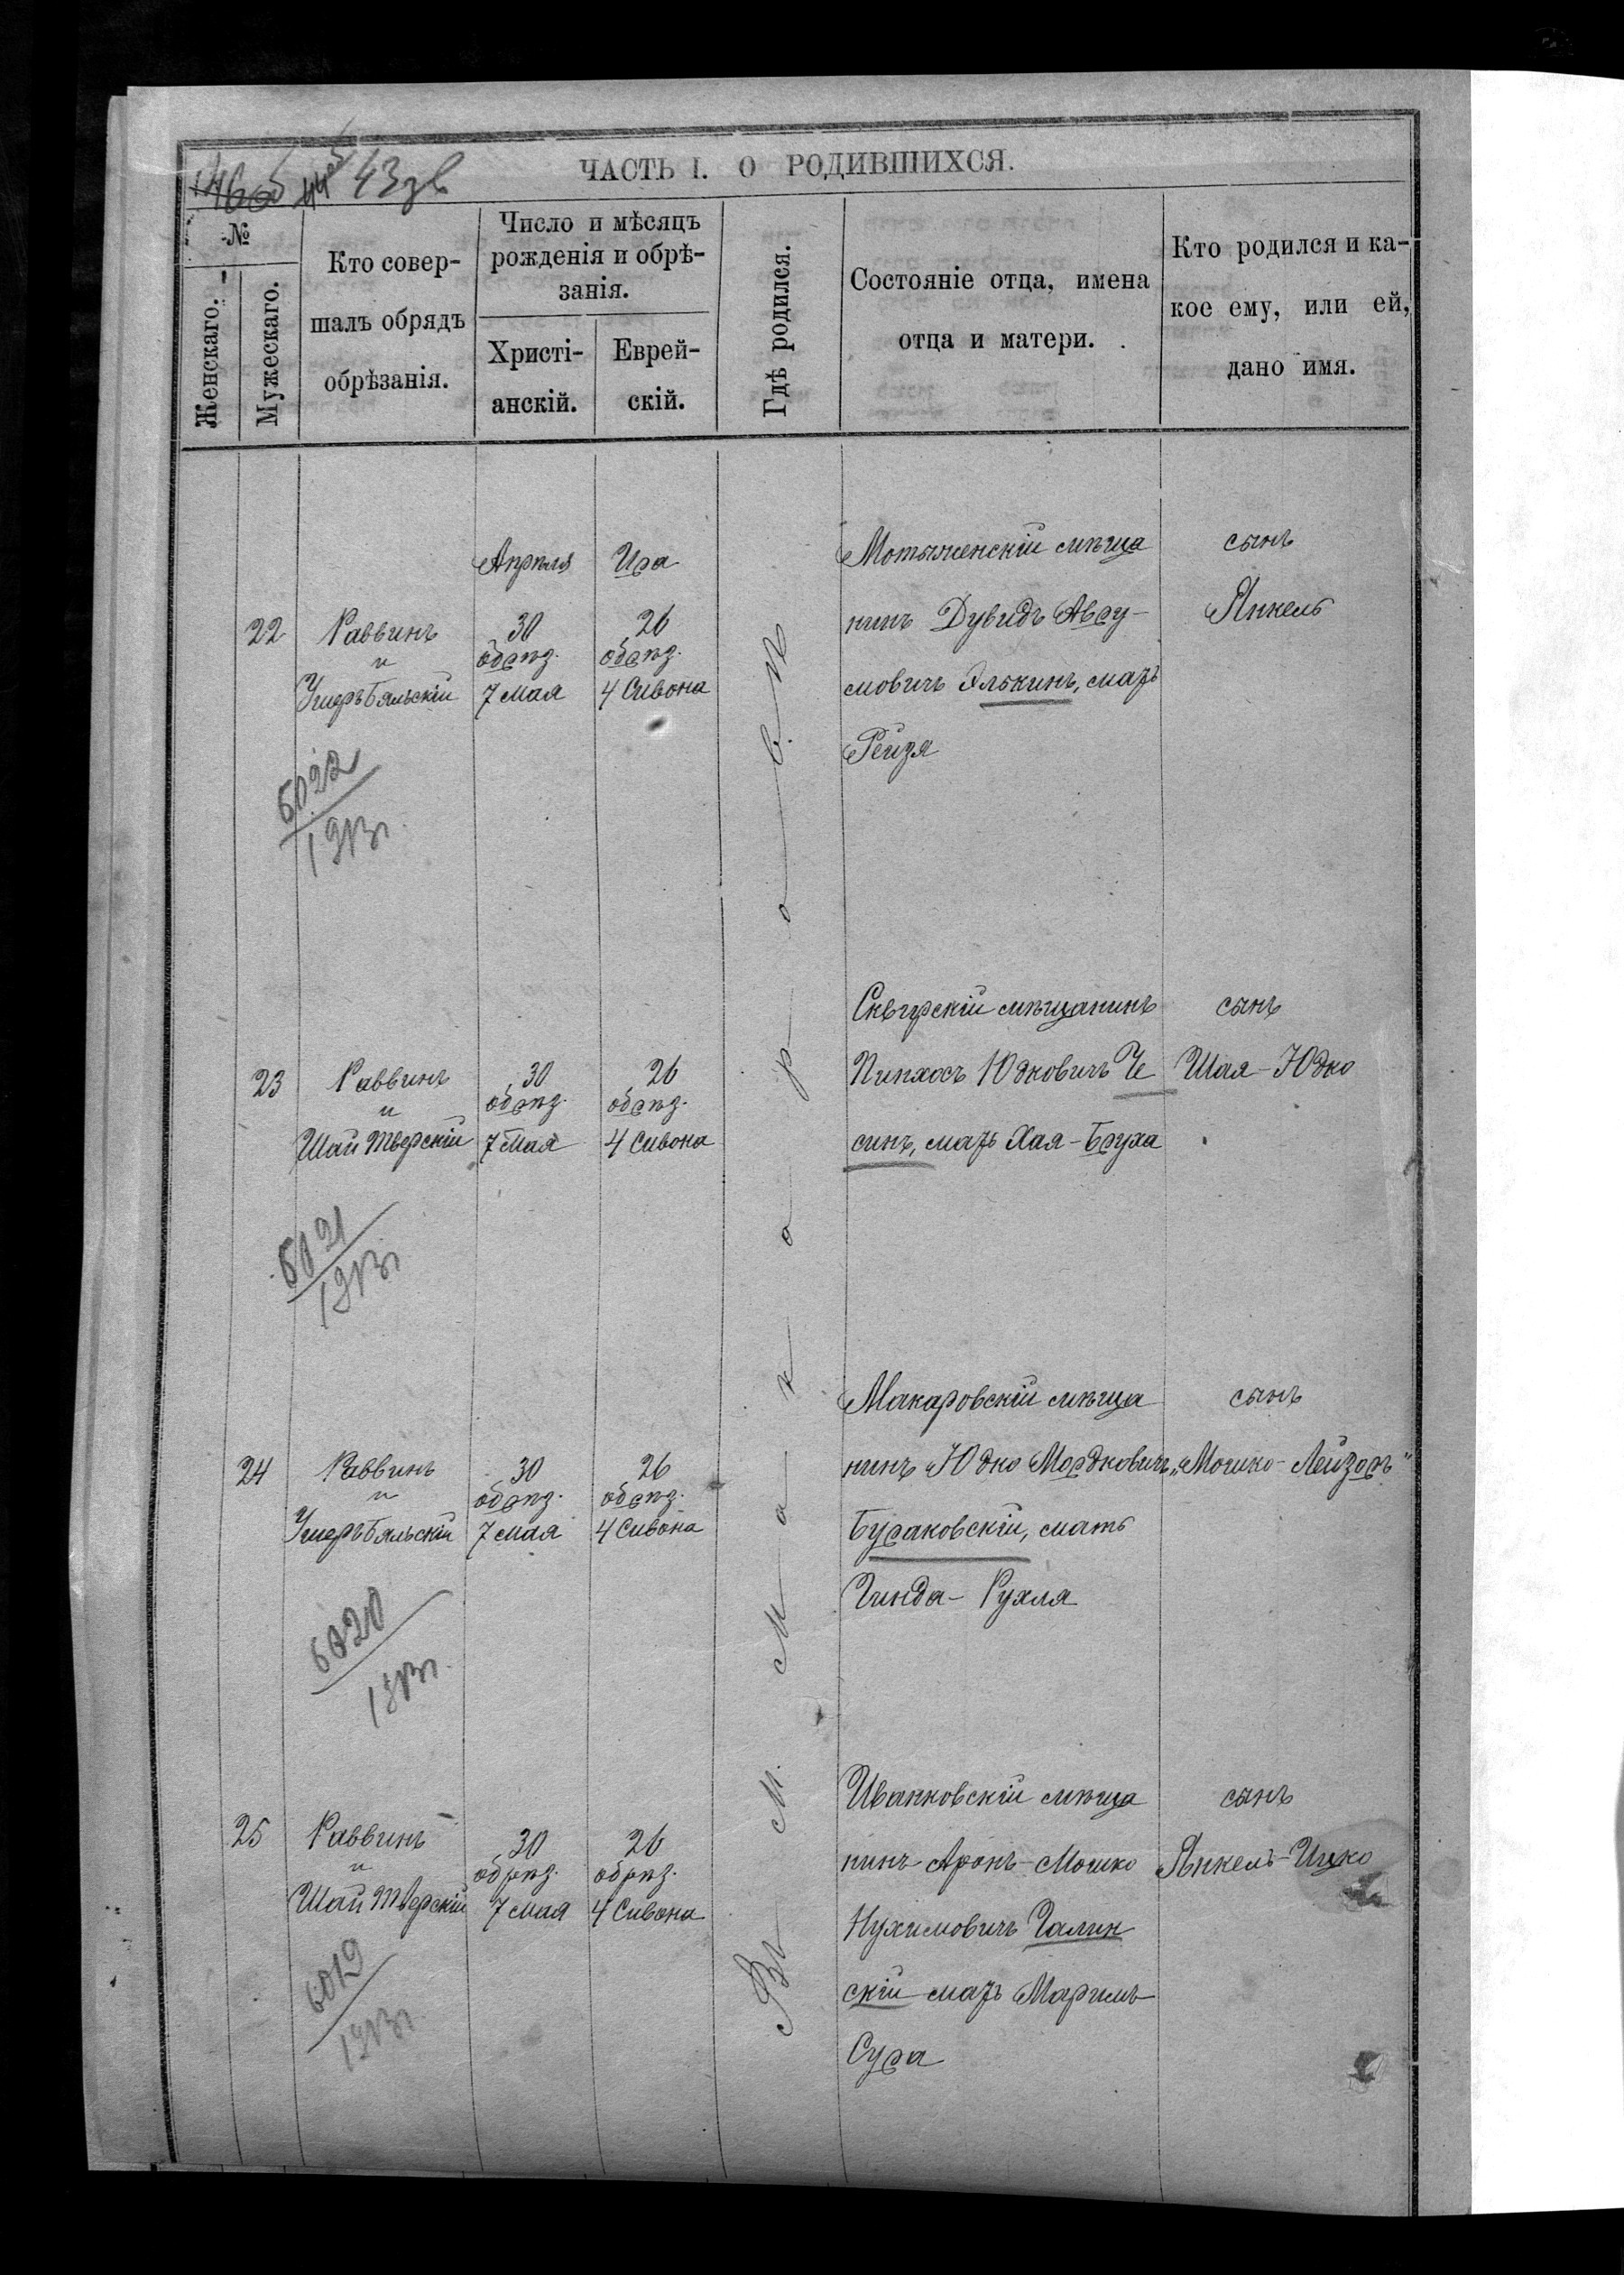 43 зв
ЧАСТЬ I. О РОДИВШИХСЯ.
№
Женскаго.
Мужескаго.
Кто совер-
шалъ обрядъ
обрѣзанія.
Число и мѣсяцъ
рожденія и обрѣ-
занія.
Христі-
анскій.
Еврей-
скій.
Гдѣ родился.
Состояніе отца, имена
отца и матери.
Кто родился и ка-
кое ему, или ей,
дано имя.
Въ м. Макаровѣ
22
Раввинъ
и
Ушеръ Бяльскій
Апрѣля
30
обрѣз.
7 мая
Ира
26
обрѣз.
4 Сивона
Мотыженскій мѣща
нинъ Дувидъ Авру-
мовичъ Элькинъ, мать
Рейзя
сынъ
Янкель
6022
1913 г.
23
Раввинъ
и
Шай Тверскій
30
обрѣз.
7 мая
26
обрѣз.
4 Сивона
Сквирскій мѣщанинъ
Пинхосъ Юдковичъ Че
синъ, мать Хая-Бруха
сынъ
Шая-Юдко
6021
1913 г.
24
Раввинъ
и
Ушеръ Бяльскій
30
обрѣз.
7 мая
26
обрѣз.
4 Сивона
Макаровскій мѣща
нинъ Юдко Мордковичъ
Бураковскій, мать
Гинда-Рухля
сынъ
„Мошко-Лейзоръ"
6020
1913 г.
25
Раввинъ
и
Шай Тверскій
30
обрѣз.
7 мая
26
обрѣз.
4 Сивона
Иванковскій мѣща
нинъ Аронъ-Мошко
Нухимовичъ Галин
скій мать Маримъ-
Сура
сынъ
Янкель-Ицко
6019
1913 г.